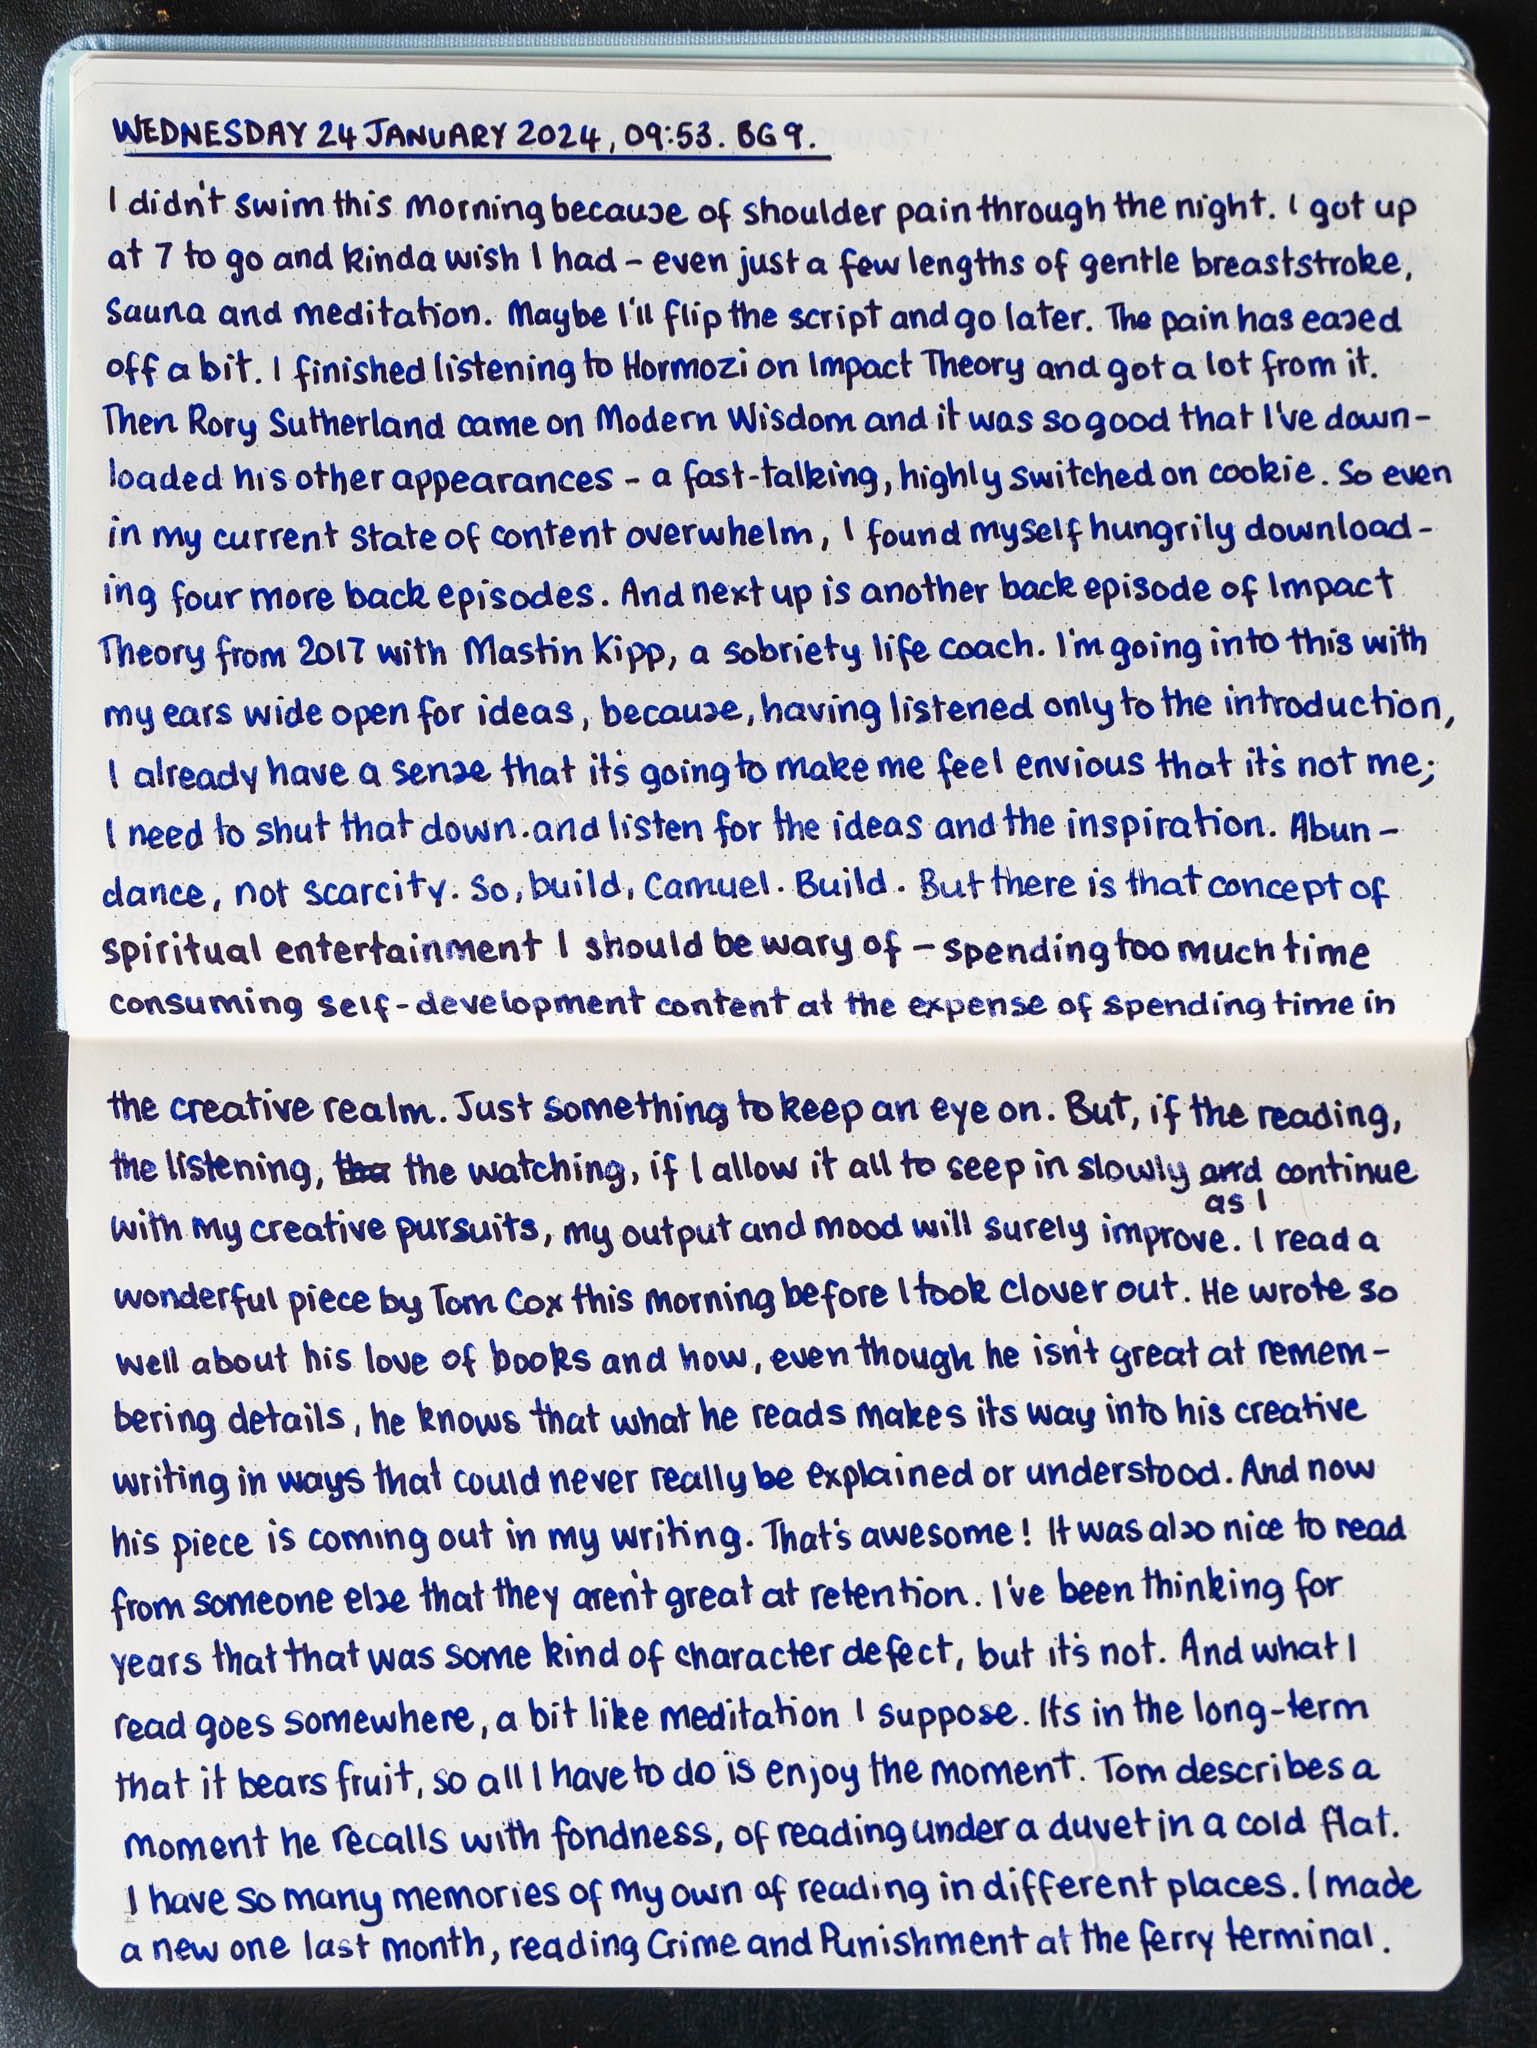 WEDNESDAY 24 JANUARY 2024, 09:53. BG9.
I didn't swim this morning because of shoulder pain through the night. I got up
at 7 to go and kinda wish I had – even just a few lengths of gentle breaststroke,
sauna and meditation. Maybe I'll flip the script and go later. The pain has eased
off a bit. I finished listening to Hormozi on Impact Theory and got a lot from it.
Then Rory Sutherland came on Modern Wisdom and it was so good that I've down-
loaded his other appearances – a fast-talking, highly switched on cookie. So even
in my current state of content overwhelm, I found myself hungrily download-
ing four more back episodes. And next up is another back episode of Impact
Theory from 2017 with Mastin Kipp, a sobriety life coach. I'm going into this with
my ears wide open for ideas, because, having listened only to the introduction,
I already have a sense that it's going to make me feel envious that it's not me;
I need to shut that down. and listen for the ideas and the inspiration. Abun-
dance, not scarcity. So, build, Camuel. Build. But there is that concept of
spiritual entertainment I should be wary of – spending too much time
consuming self-development content at the expense of spending time in
the creative realm. Just something to keep an eye on. But, if the reading,
the listening, tha the watching, if I allow it all to seep in slowly and continue
as I
with my creative pursuits, my output and mood will surely improve. I read a
wonderful piece by Tom Cox this morning before I took Clover out. He wrote so
well about his love of books and how, even though he isn't great at remem-
bering details, he knows that what he reads makes its way into his creative
writing in ways that could never really be explained or understood. And now
his piece is coming out in my writing. That's awesome! It was also nice to read
from someone else that they aren't great at retention. I've been thinking for
years that that was some kind of character defect, but it's not. And what I
read goes somewhere, a bit like meditation I suppose. It's in the long-term
that it bears fruit, so all I have to do is enjoy the moment. Tom describes a
moment he recalls with fondness, of reading under a duvet in a cold flat.
I have so many memories of my own of reading in different places. I made
a new one last month, reading Crime and Punishment at the ferry terminal.